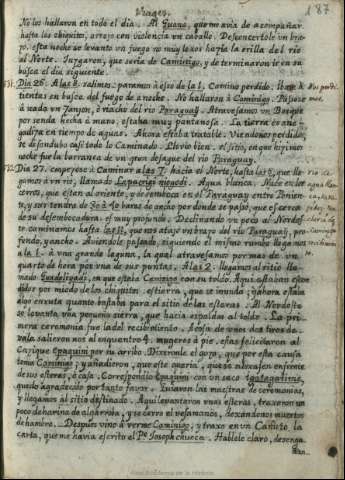 Viages.
187
No los hallaron en todo el dia. Al Guana, que me avia de acompañar
hasta los chiquitos, arrojo con violencia un caballo. Desconcertole un bra-
zo. esta noche se levanto un fuego no muy lexos hazia la orilla del rio
al Norte. Juzgaron, que seria de Caminigo, y determinaron ir en su
busca el dia siguiente.
131. Dia 26. a las 8. salimos: paramos à eso de la 1. Camino perdido.
tentar en busca del fuego de anoche. No hallaron à Caminigo.
à nado un Janson, o riacho del rio Paraguay. Atravesamos un Bosque
por senda hecha à mano, estaba muy pantanosa. La tierra es ane-
gadiza en tiempo de aguas. Ahora estaba tratable. Viendonos perdidos,
se desandubo casi todo lo Caminado. Llovio bien. el sitio, en que hizimos
noche fue la barranca de un gran desague del rio Paraguay.
132. Dia 27. empezose à Caminar a las 7. hacia el Norte, hasta las 8, que lle-
gamos à un rio, llamado Lapacnis niogodi. Agua blanca. Nace en los
cerros, que estan al oriente, y desemboca en el Paraguay entre Ponien-
te, y sur tendra de 30 à 40 baras de ancho por donde se paso, que es cerca
de su desembocadura. es muy profundo. Declinando un poco al Nordes-
te caminamos hasta las 11, que nos atajo un brazo del rio Paraguay, pro-
fundo, y ancho. Aviendole pasado, siguiendo el mismo rumbo llegamos
a la 1. à una grande laguna, la qual atravesamos por mas de un
quarto de hora por una de sus puntas. A las 2. llegamos al sitio lla-
mado Guadalgadi, en que estaba Caminigo con su toldo. Aqui estaban escon-
didos por miedo de los chiquitos. es tierra, que se inunda; y ahora estaba
algo enxuta quanto bastaba para el sitio de las esteras. Al Nordeste
se levanta una pequeña sierra, que hacia espaldas al toldo. La pri-
mera ceremonia fue la del recibimiento. A cosa de unos dos tiros de
vala salieron nos al encuentro 4. mugeres à pie. estas felicitaron al
Cacique Epaquini por su arribo. Dixeronle el gozo, que por esta causa
tenia Caminigo; y añadieron, que este queria, que se alvergasen enfrente
de sus esteras, ò casa. Correspondio Epaquini con un seco
quedo agradecido por tanto favor. Guiaron las maestras de ceremonias,
y llegamos al sitio destinado. Aqui levantaron unas esteras, traxeron un
poco de harina de algarroba, y se cerro el vesamanos, dexandonos muertos
de hambre. Despues vino à verme Caminigo, y traxo en un Cañuto la
carta, que me havia escrito el Pe. Joseph chueca. Hablele claro, desenga-